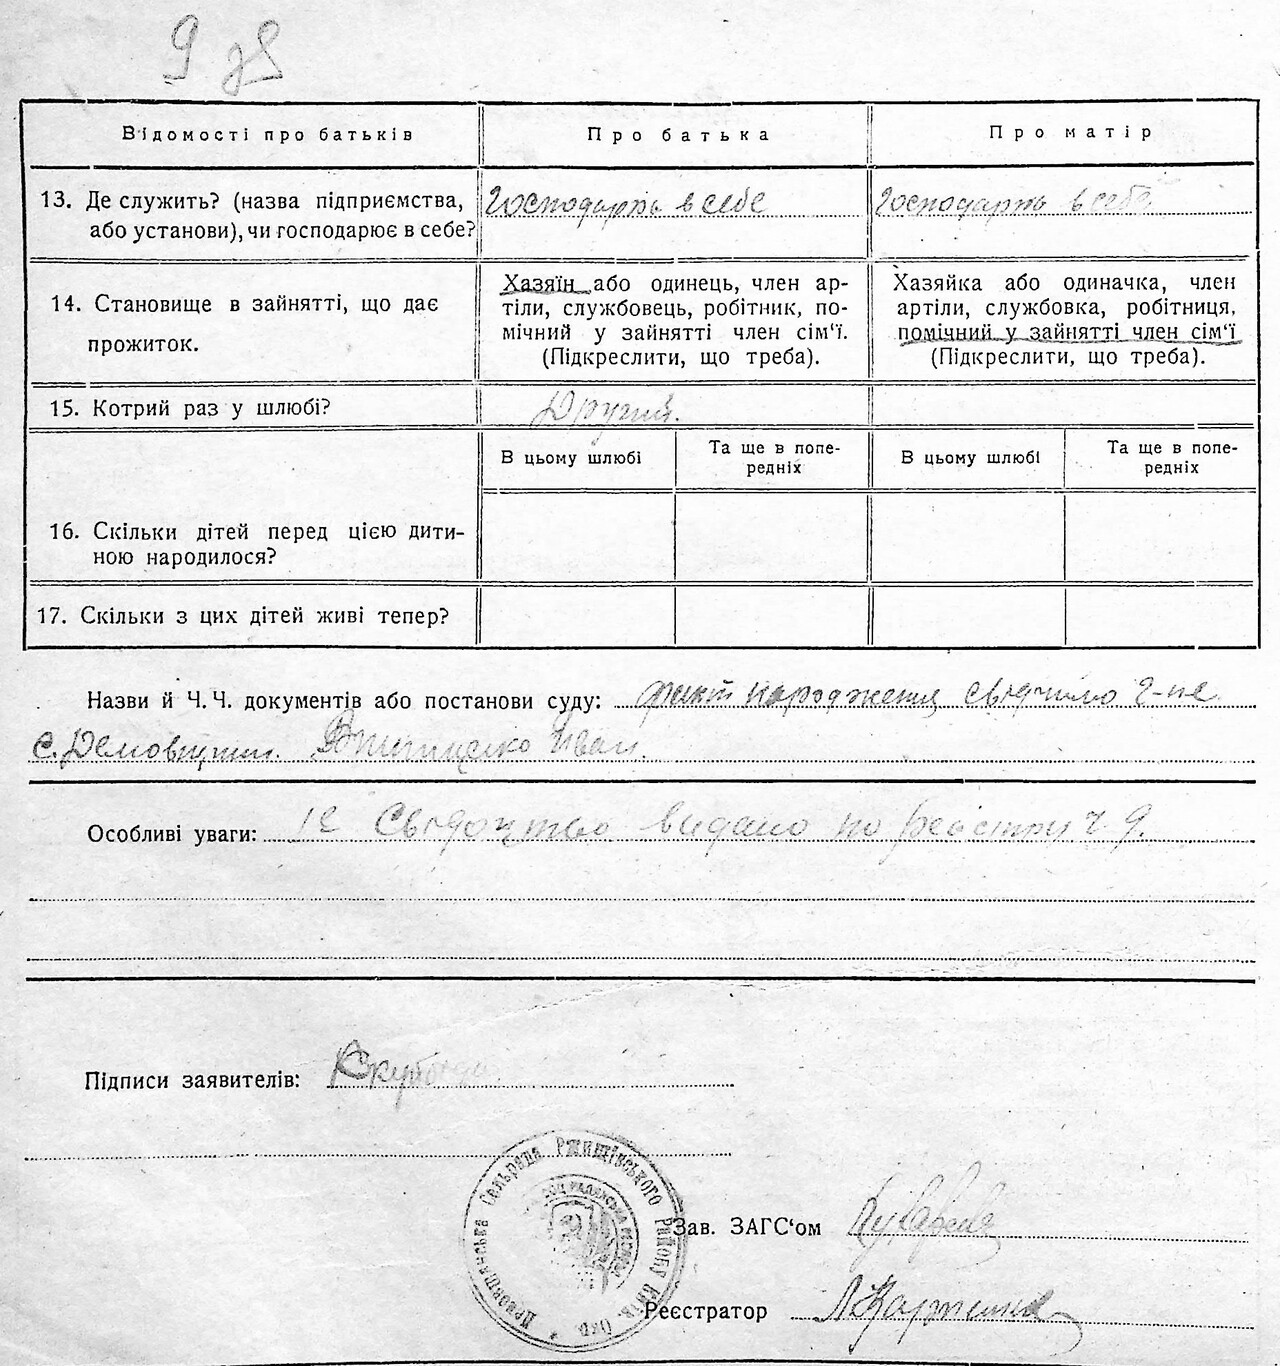 9
Відомості про батьків
Про батька
Про матір
13. Де служить? (назва підприємства, або установи), чи господарює в себе?
Господарть в себе
Господарть в себе
14. Становище в зайнятті, що дає прожиток.
Хазяїн або одинець, член ар-
тіли, службовець, робітник, по-
мічний у зайнятті член сім'ї.
(Підкреслити, що треба).
Хазяйка або одиначка, член
артіли, службовка, робітниця,
помічний у зайнятті член сім'ї
(Підкреслити, що треба).
15. Котрий раз у шлюбі?
Другий.
В цьому шлюбі
Та ще в попе-
редніх
В цьому шлюбі
Та ще в попе-
редніх
16. Скільки дітей перед цією дити-
ною народилося?
17. Скільки з цих дітей живі тепер?
Назви й Ч. Ч. документів або постанови суду: факт народження свідчило
Іван.
Особливі уваги: Свідоцтво видано по Реєстру ч 9.
Підписи заявителів:
Сельрада Ржищівського Району Київ. Окр.
Зав. ЗАГС'ом
Реєстратор